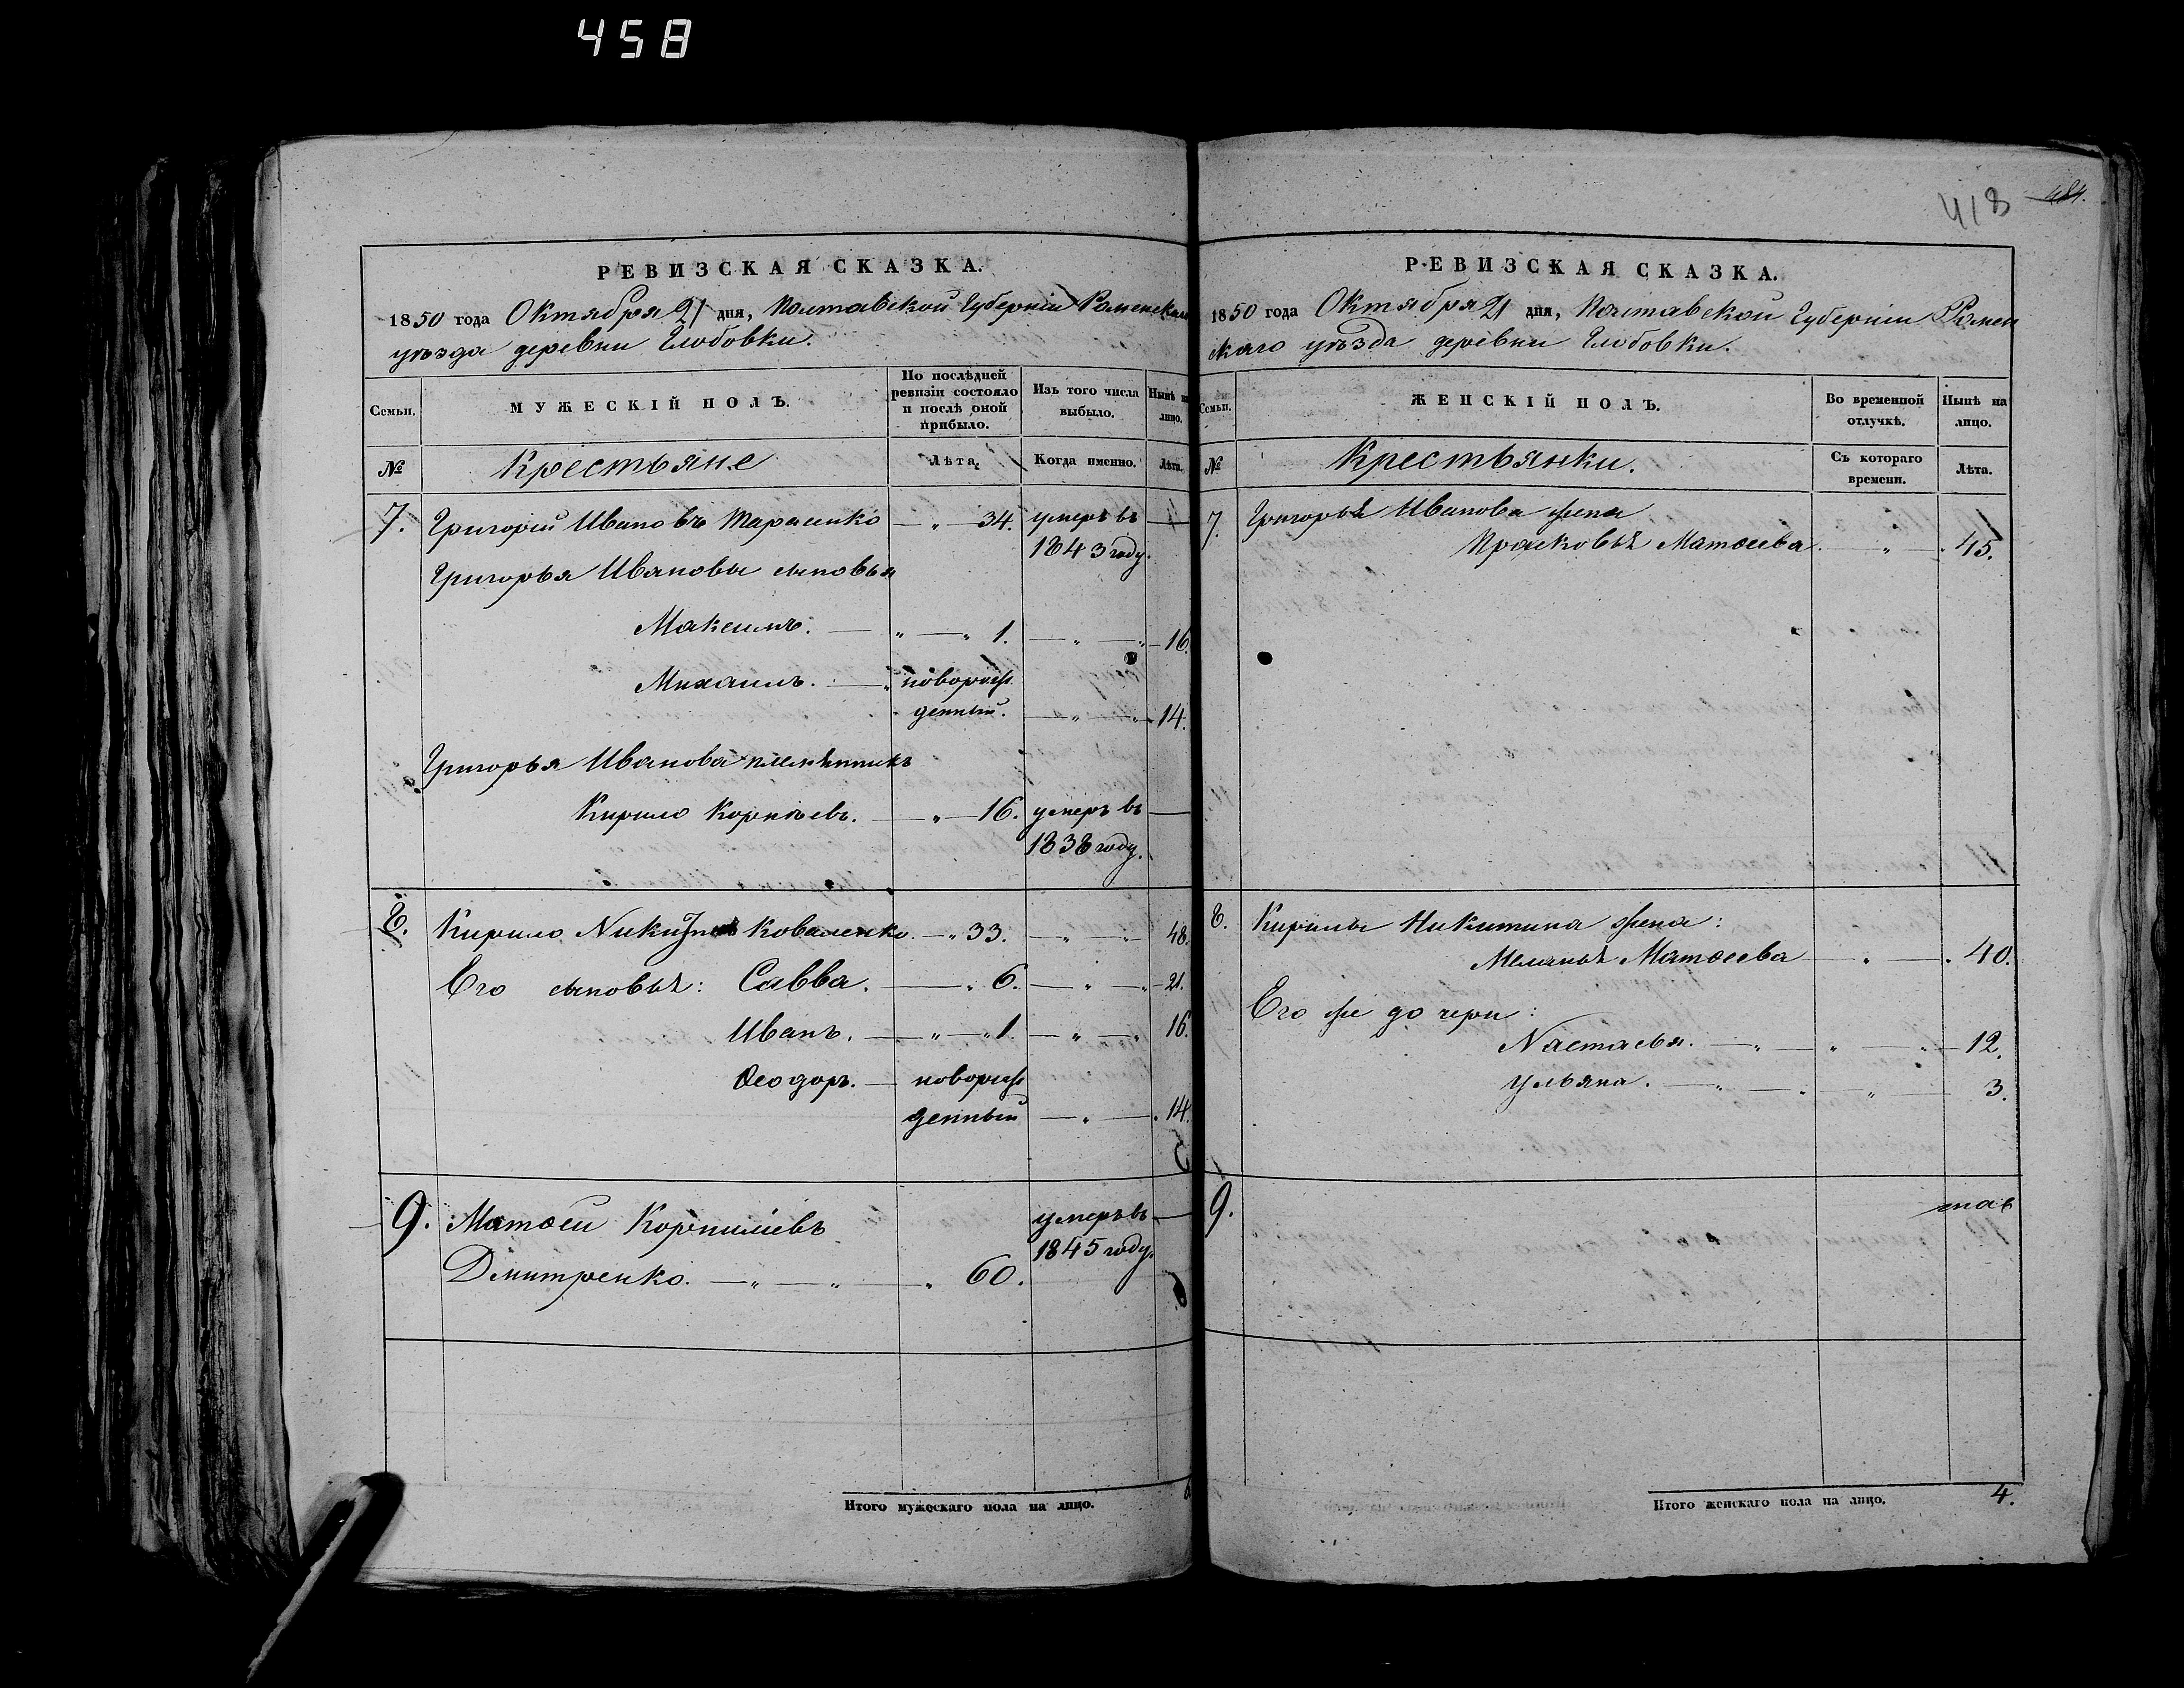 458
РЕВИЗСКАЯ СКАЗКА.
1850 года Октября 21 дня, Полтавской Губерніи Роменскаго
уѣзда деревни Глобовки.
Семьи.
МУЖЕСКІЙ ПОЛЪ.
По послѣдней ревизіи состояло и послѣ оной прибыло.
Изъ того числа выбыло.
Нынѣ на лицо.
№
Крестьяне
Лѣта.
Когда именно.
Лѣта.
7. Григорій Ивановъ Тарасенко — „ — 34. умеръ въ —
1843 году.
Григорья Иванова сыновья
Максимъ. — „ — „ 1. — „ — „ — 16.
Михаилъ. — „ новорож
денный. — „ — „ — 14.
Григорья Иванова племянникъ
Кирило Корнѣевъ. — „ — 16. умеръ въ —
1838 году.
8. Кирило Никитинъ Коваленко. — „ 33. — „ — „ 48.
Его сыновья: Савва. — „ 6. — „ — „ — 21.
Иванъ. — „ — „ 1. — „ — „ 16.
Ѳеодоръ. — новорож
денный — „ — . 14.
9. Матѳей Корниліевъ умеръ въ —
1845 году.
Дмитренко. — „ — „ — „ 60.
Итого мужескаго пола на лицо. 6
418
484.
РЕВИЗСКАЯ СКАЗКА.
1850 года Октября 21 дня, Полтавской Губерніи Ромен
скаго уѣзда деревни Глобовки.
Семьи.
ЖЕНСКІЙ ПОЛЪ.
Во временной отлучкѣ.
Нынѣ на лицо.
№
Крестьянки.
Съ котораго времени.
Лѣта.
7. Григорья Иванова жена
Прасковья Матѳеева. — „ — . 45.
8. Кирилы Никитина жена:
Меланья Матѳеева — „ — . 40.
Его же дочери:
Настасья. — „ — „ — „ — 12.
Ульяна. — „ — . — „ — 3.
9.
Итого женскаго пола на лицо. 4.